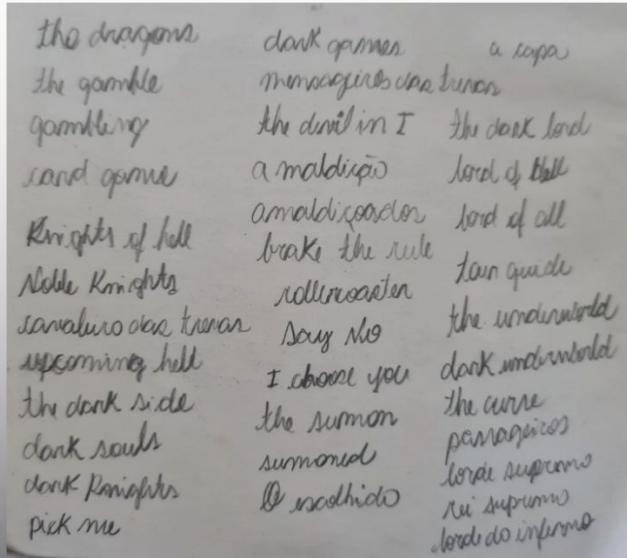 the dragons
the gamble
gambling
card game
Knights of hell
Noble Knights
cavaleiro das trevas
upcoming hell
the dark side
dark souls
dark Knights
pick me
dark games
mensageiros das trevas
the devil in I
a maldição
amaldiçoados
brake the rule
rollercoaster
Say No
I choose you
the sumon
sumoned
O escolhido
a capa
the dark lord
lord of Hell
lord of all
tour guide
the underworld
dark underworld
the curse
passageiros
lorde supremo
rei supremo
lorde do inferno